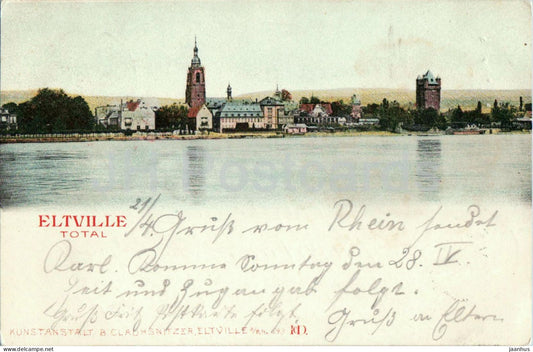 ELTVILLE
TOTAL
21/4 Gruß vom Rhein sendet
Karl. Komme Sonntag den 28. IV.
Zeit und Zugangab folgt.
Gruß folgt.
Gruß an Eltern.
KUNSTANSTALT B. CLAUHSNITZER, ELTVILLE
HIPostcard
www.jaanhus.com